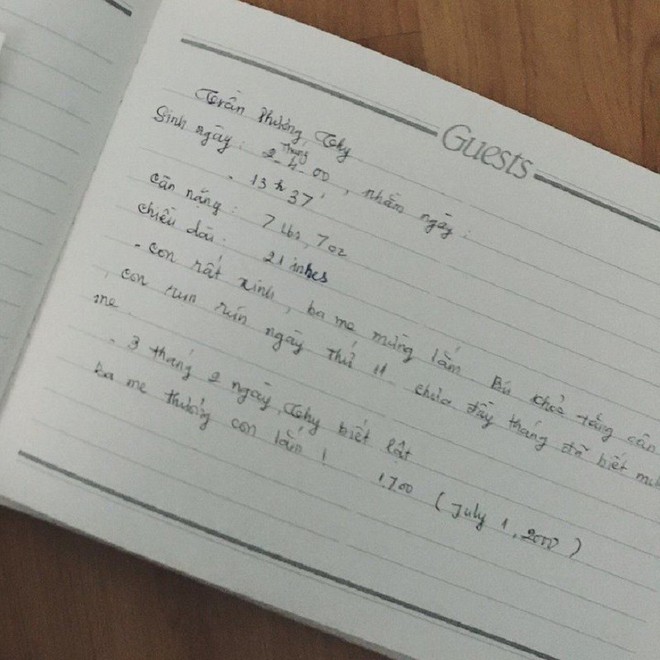 Guests
Trần Phương Thy
Sinh ngày: 2 tháng 4-00, nhằm ngày:
- 13h 37'
Cân nặng: 7 lbs, 7oz
chiều dài: 21 inhes
- con rất xinh, ba mẹ mừng lắm. Bú khỏe tăng cân
, con run rún ngày thứ 11. chưa đầy tháng đã biết
mẹ.
- 3 tháng 2 ngày, Thy biết lật
Ba mẹ thương con lắm! 1.7.00 (July 1, 2000)